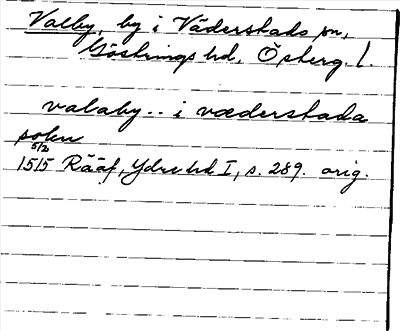 Valby, by i Väderstads sn,
Göstrings hd, Österg. l.
valaby .. i væderstada
sokn
5/2
1515 Rääf, Ydre hd I, s. 289. orig.